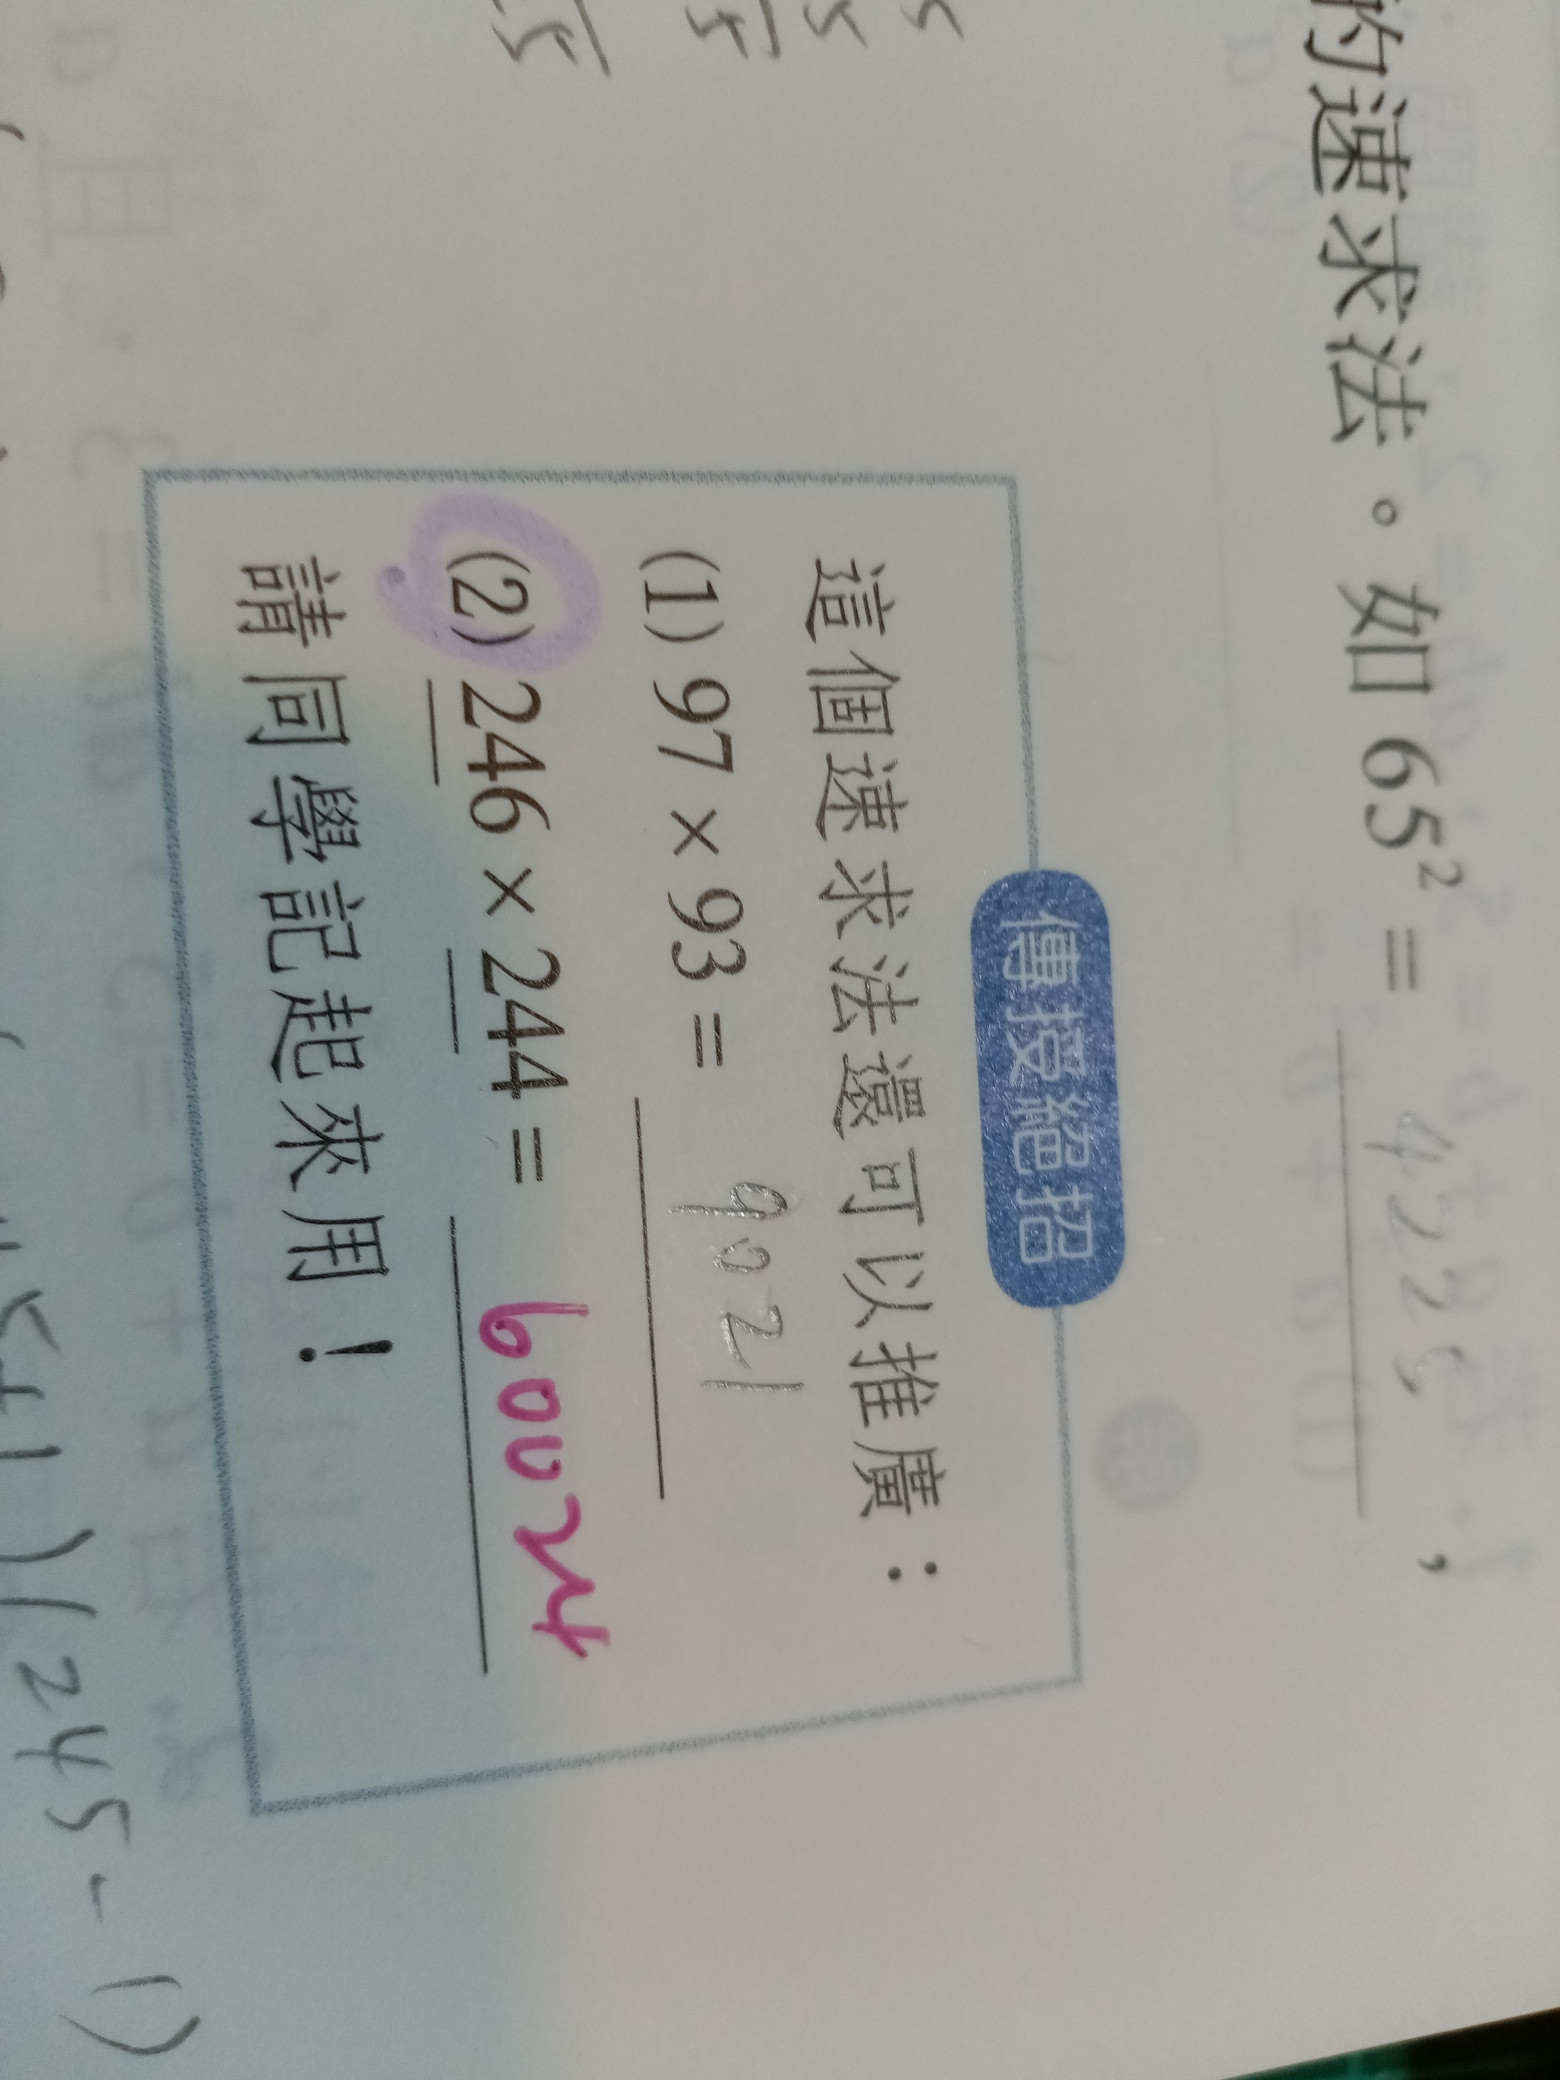 的速求法。如 65² = 4225 ,
傳授絕招
這個速求法還可以推廣：
(1) 97 × 93 = 9021
(2) 246 × 244 = 60024
請同學記起來用！
)(245-1)